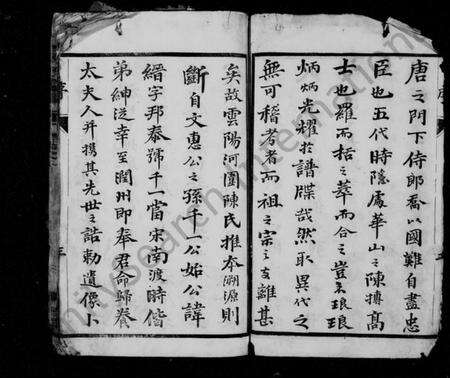 唐之門下侍郎喬以國難自盡忠
臣也五代時隱處華山之陳摶高
士也羅而括之萃而合之豈不琅琅
炳炳光耀於譜牒哉然取異代之
無可稽考者而祖之宗之支離甚
矣故雲陽河園陳氏推本溯源則
斷自文惠公之孫千一公始公諱
縉字邦泰號千一當宋南渡時偕
弟紳泛幸至潤州即奉君命歸養
太夫人并携其先世之誥勅遺像卜
序